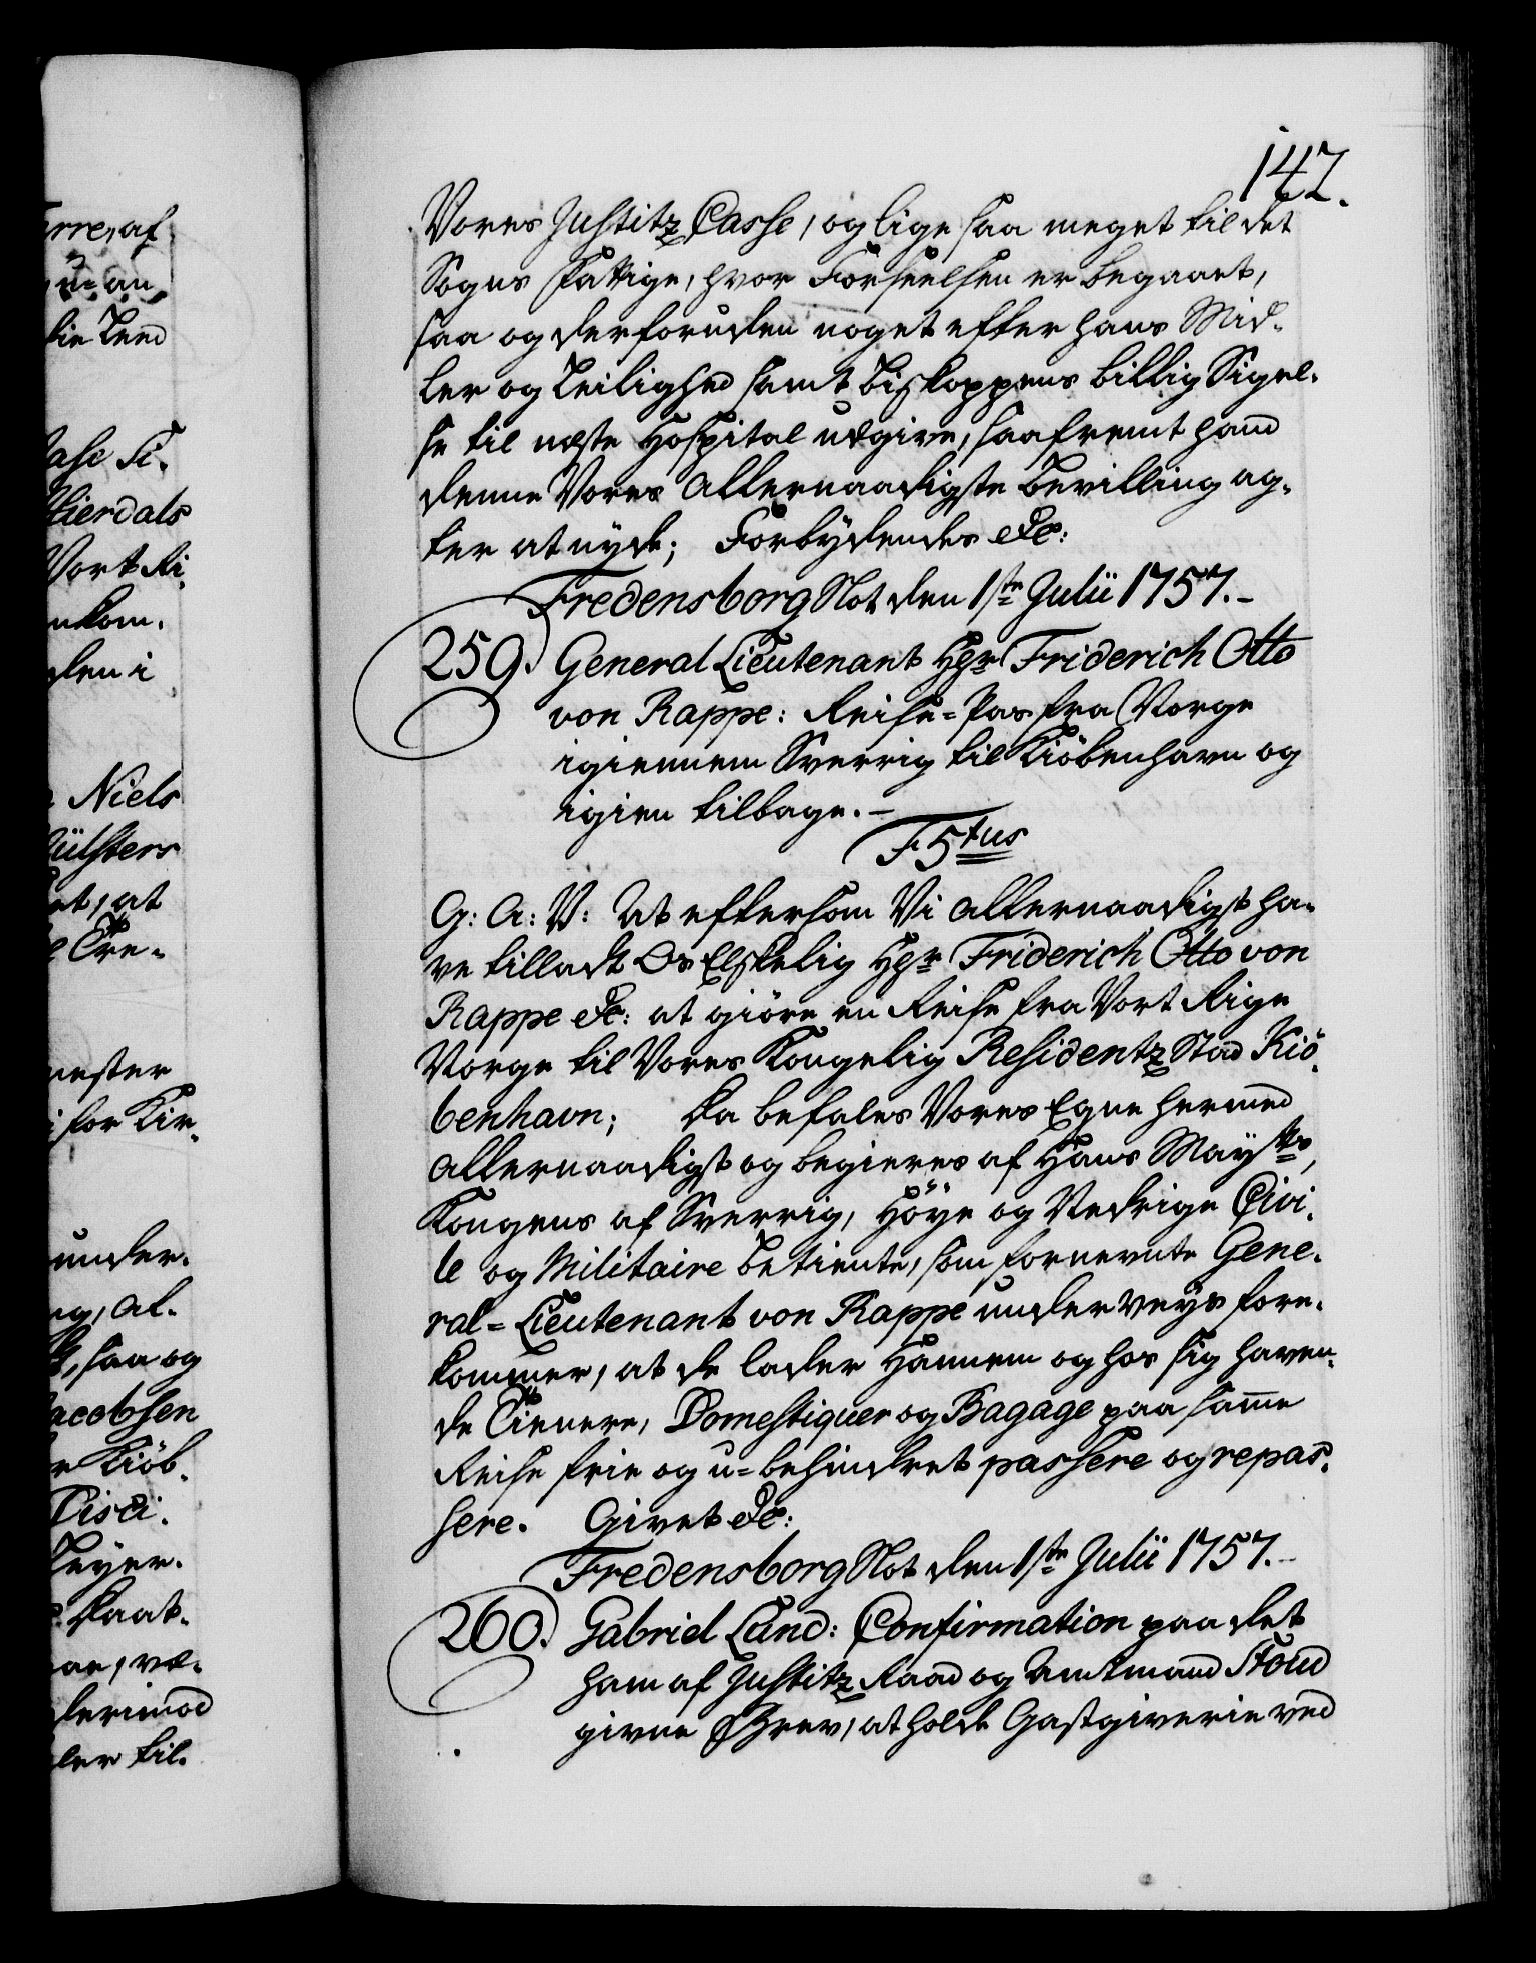 147.
Vores Justitz Casse, og lige saa meget til det
Sogns Fattige, hvor Forseelsen er begaaet,
saa og derforuden noget efter hans Mid-
ler og Leilighed samt Biskoppens billig Sigel-
se til næste Hospital udgive, saafremt hand
denne Vores Allernaadigste Bevilling ag-
ter at nyde; Forbydendes &c:
Fredensborg Slot den 1ste Julii 1757.-
259. General Lieutenant Hr Friderich Otto
von Rappe: Reise-Pas fra Norge
igiennem Sverrig til Kiöbenhavn og
igien tilbage.-
F 5tus
G: A: V: At eftersom Vi allernaadigst ha-
ve tilladt Os Elskelig Hr Friderich Otto von
Rappe &c: at giöre en Reise fra Vort Rige
Norge til Vores Kongelig Residentz Stad Kiö-
benhavn; Da befales Vores Egne hermed
allernaadigst og begieres af Hans Mayts,
Kongens af Sverrig, Höye og Nedrige Civi-
le og Militaire Betiente, som fornevnte Gene-
ral-Lieutenant von Rappe underveys fore-
kommer, at de lader Hannem og hos sig haven-
de Tienere, Domestiquer og Bagage paa samme
Reise frie og u-behindret passere og repas-
sere. Givet &c:
Fredensborg Slot den 1ste Julii 1757.-
260. Gabriel Lund: Confirmation paa det
ham af Justitz Raad og Amtmand Stoud
givne Brev, at holde Gastgiverie ved
irre, af
u-an
Niels
et, at
Tre-
mester
for Kir-
under-
, saa og
Jacobsen
Kiöb-
Tisci.
derimod
ler til-